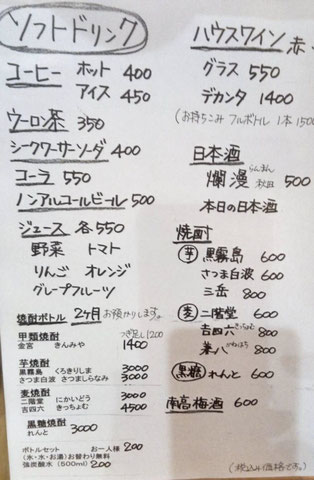 ソフトドリンク
コーヒー ホット 400
アイス 450
ウーロン茶 350
シークワーサーソーダ 400
コーラ 550
ノンアルコールビール 500
ジュース 各550
野菜 トマト
りんご オレンジ
グレープフルーツ
焼酎ボトル 2ヶ月 お預かりします。
甲類焼酎 つぎ足し1200
金宮 きんみや 1400
芋焼酎
黒霧島 くろきりしま 3000
さつま白波 さつましらなみ 3000
麦焼酎
二階堂 にかいどう 3000
吉四六 きっちょむ 4500
黒糖焼酎
れんと 3000
ボトルセット お一人様 200
(氷・水・お湯)お替わり無料
強炭酸水 (500ml) 200
ハウスワイン 赤・
グラス 550
デカンタ 1400
(お持ちこみ フルボトル 1本 1500
日本酒
らんまん
爛漫 秋田 500
本日の日本酒
焼酎
芋 黒霧島 600
さつま白波 600
三岳 800
麦 二階堂 600
吉四六 きっちょむ 800
兼八 かねはち 800
黒糖 れんと 600
南高梅酒 600
(税込み価格です。)